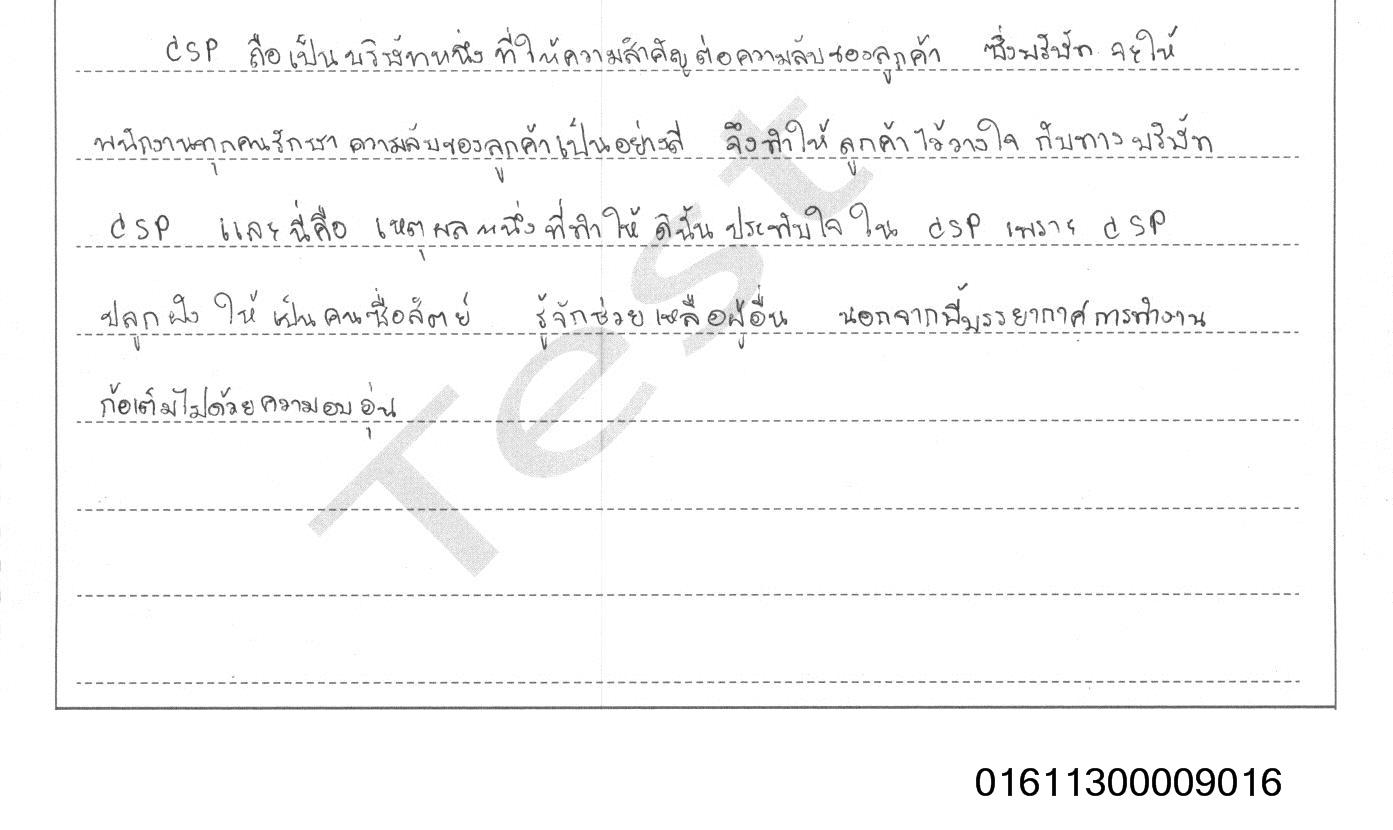 CSP ถือเป็นบริษัทหนึ่ง ที่ให้ความสำคัญต่อความลับของลูกค้า ซึ่งบริษัท จะให้
พนักงานทุกคนรักษา ความลับของลูกค้าเป็นอย่างดี จึงทำให้ ลูกค้าไว้วางใจ กับทาง บริษัท
CSP และนี่คือ เหตุผลหนึ่งที่ทำให้ ดิฉัน ประทับใจ ใน CSP เพราะ CSP
ปลูกฝัง ให้ เป็น คนซื่อสัตย์ รู้จักช่วยเหลือผู้อื่น นอกจากนี้บรรยากาศการทำงาน
ก้อเต็มไปด้วยความอบอุ่น
Test
01611300009016